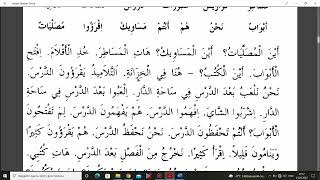 أَبْوَابٌ نَحْنُ هُمْ أَنْتُمْ مَسَاوِيكُ اِقْرَؤُوا مُصَلَّيَاتٌ
أَيْنَ الْمُصَلَّيَاتُ؟ – أَيْنَ الْمَسَاوِيكُ؟ – هَاتِ الْمَسَاطِرَ. خُذِ الْأَقْلَامَ. اِفْتَحِ
الْأَبْوَابَ. – أَيْنَ الْكُتُبُ؟ – هُنَا فِي الْخِزَانَةِ. التَّلَامِيذُ يَقْرَؤُونَ الدَّرْسَ.
نَحْنُ نَلْعَبُ بَعْدَ الدَّرْسِ فِي سَاحَةِ الدَّارِ. اِلْعَبُوا بَعْدَ الدَّرْسِ فِي سَاحَةِ
الدَّارِ. اِشْرَبُوا الشَّايَ. هُمْ يَفْهَمُونَ الدَّرْسَ. هُمْ يَفْهَمُونَ. لِمَ تَفْتَحُونَ
الْأَبْوَابَ؟ أَنْتُمْ تَحْفَظُونَ الدَّرْسَ. نَحْنُ نَحْفَظُ الدَّرْسَ. هُمْ يَقْرَؤُونَ كَثِيرًا
وَيَنَامُونَ قَلِيلًا. اِقْرَأْ كَثِيرًا. نَخْرُجُ مِنَ الْفَصْلِ بَعْدَ الدَّرْسِ. هَاتِ كُتُبِي.